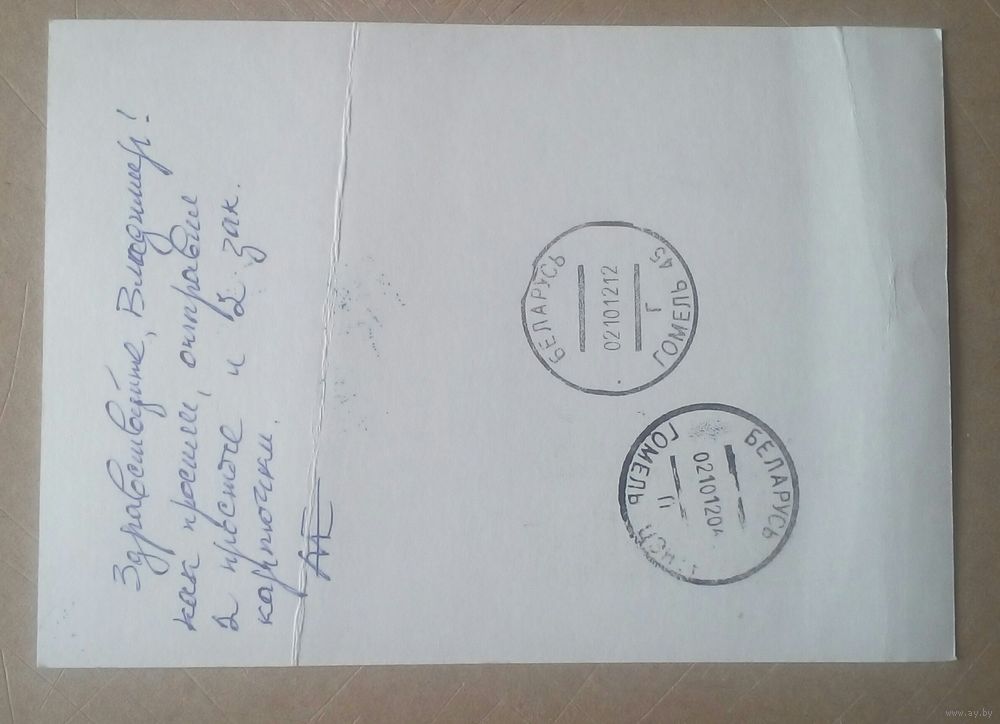 Здравствуйте, Владимир!
как просили, отправил
2 простые и 2 зак.
карточки.
БЕЛАРУСЬ
02101212
Г
ГОМЕЛЬ 45
БЕЛАРУСЬ
0210120
ГОМЕЛЬ
www.ay.by